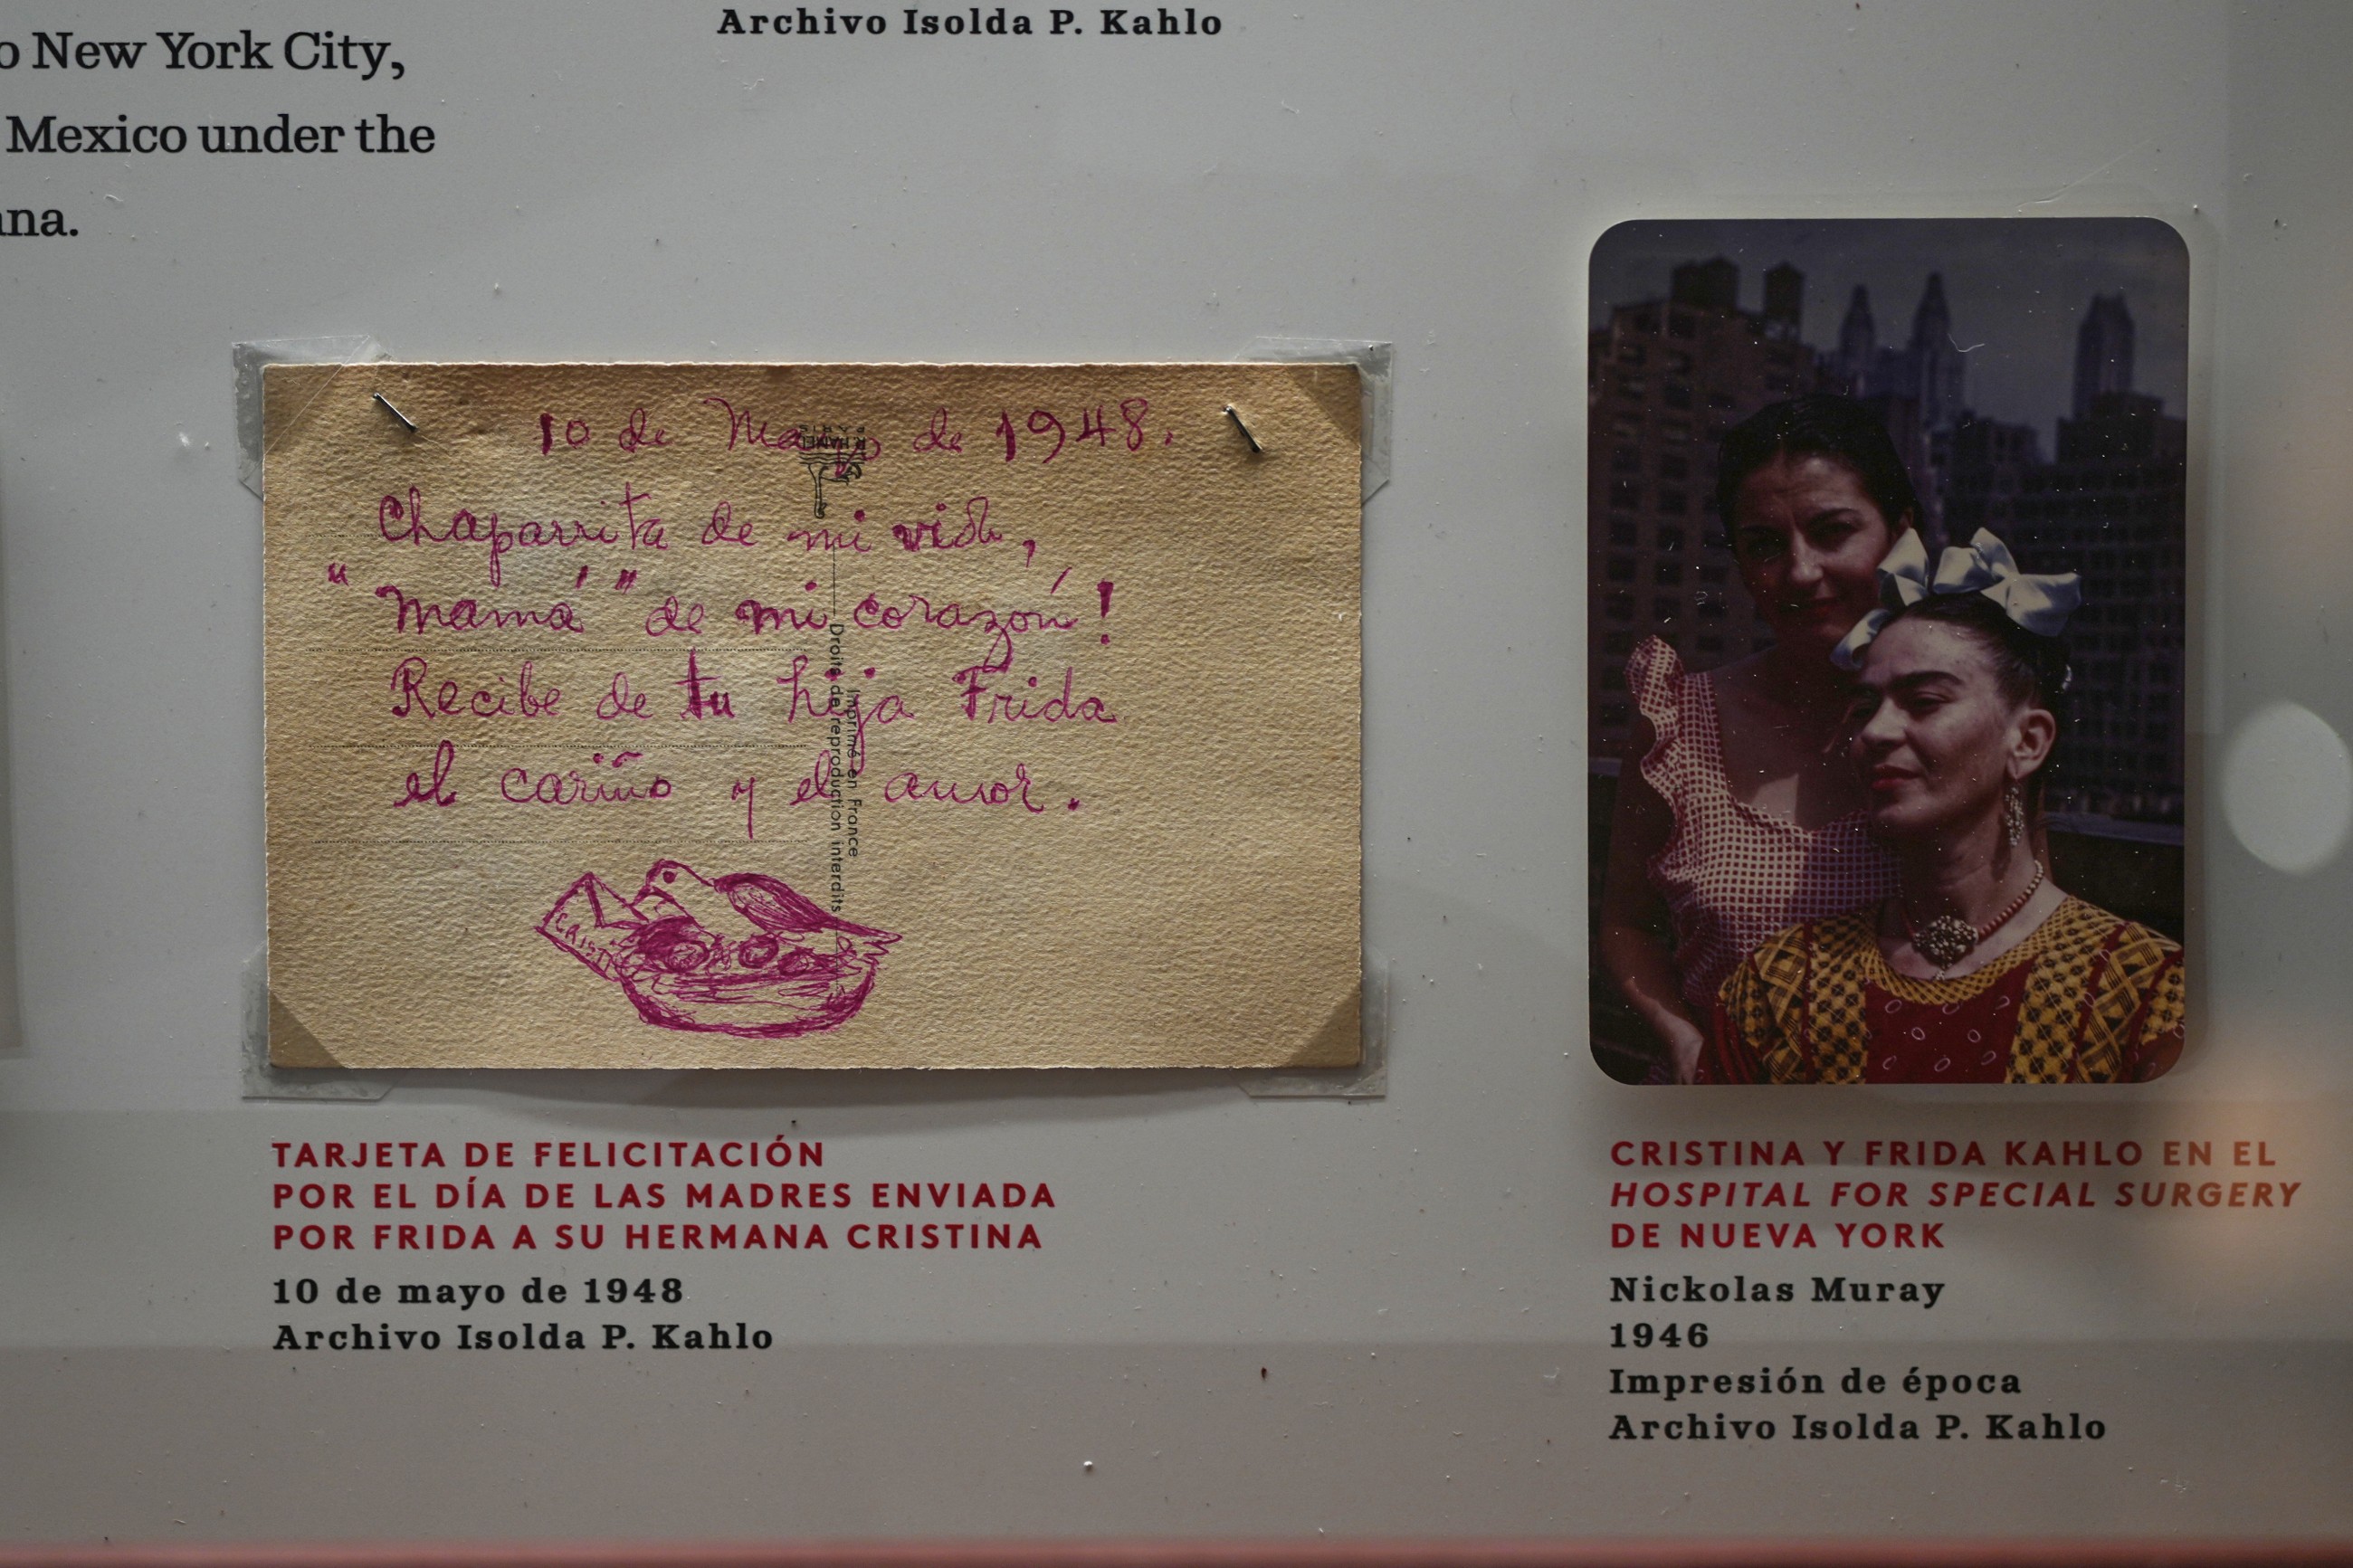 o New York City,
Mexico under the
ana.
Archivo Isolda P. Kahlo
10 de Mayo de 1948.
Chaparrita de mi vida,
"mamá" de mi corazón!
Recibe de tu hija Frida
el cariño y el amor.
Imprimé en France
Droits de reproduction interdits
CRISTI
TARJETA DE FELICITACIÓN
POR EL DÍA DE LAS MADRES ENVIADA
POR FRIDA A SU HERMANA CRISTINA
10 de mayo de 1948
Archivo Isolda P. Kahlo
CRISTINA Y FRIDA KAHLO EN EL
HOSPITAL FOR SPECIAL SURGERY
DE NUEVA YORK
Nickolas Muray
1946
Impresión de época
Archivo Isolda P. Kahlo